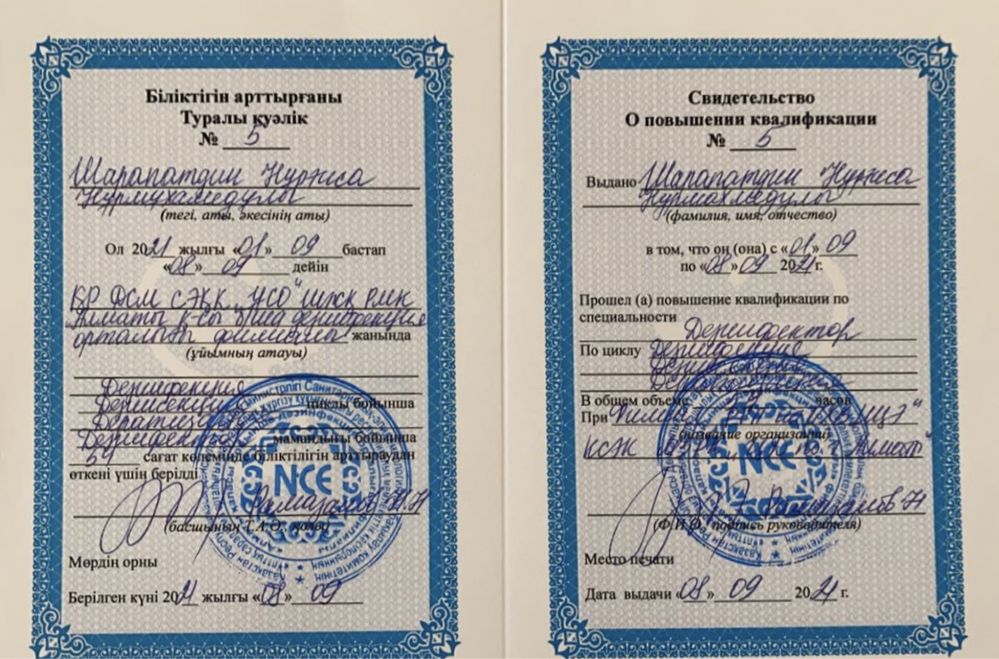 Біліктігін арттырғаны
Туралы куәлік
№ 5
Шарапатдин Нургиса
Нурмухамедулы
(тегі, аты, әкесінің аты)
Ол 2021 жылғы «01» 09 бастап
«08» 09 дейін
ҚР ДСМ СЭБК "ҰСО" ШЖҚ РМК
"Алматы қ-сы дезинфекция
орталығы филиалы" жанында
(ұйымның атауы)
Дезинфекция
Дезинсекция циклы бойынша
Дератизация
Дезинфектор мамандығы бойынша
54 сағат көлемінде біліктілігін арттыраудан
өткені үшін берілді
Рамазанов Н.Н
(басшының Т.А.Ә., қолы)
Мөрдің орны
Берілген күні 2021 жылғы «08» 09
NCE
Свидетельство
О повышении квалификации
№ 5
Выдано Шарапатдин Нургиса
Нурмахмедулы
(фамилия, имя, отчество)
в том, что он (она) с «01» 09
по «08» 09 2021 г.
Прошел (а) повышение квалификации по
специальности
Дезинфектор
По циклу Дезинфекция
Дезинсекция
Дератизация
В общем объеме 54 часов
При Филиал
(название организации)
КСЭК по г. Алматы"
Рамазанов Н
(Ф.И.О. подпись руководителя)
Место печати
Дата выдачи «08» 09 2021 г.
NCE